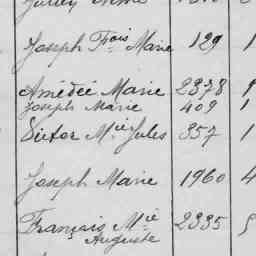 Joseph Fçois Marie 129 1
Amédée Marie 2378 9
Joseph Marie 409 1
Victor Mie Jules 357 1
Joseph Marie 1960 4
François Mie 2335 5
Auguste